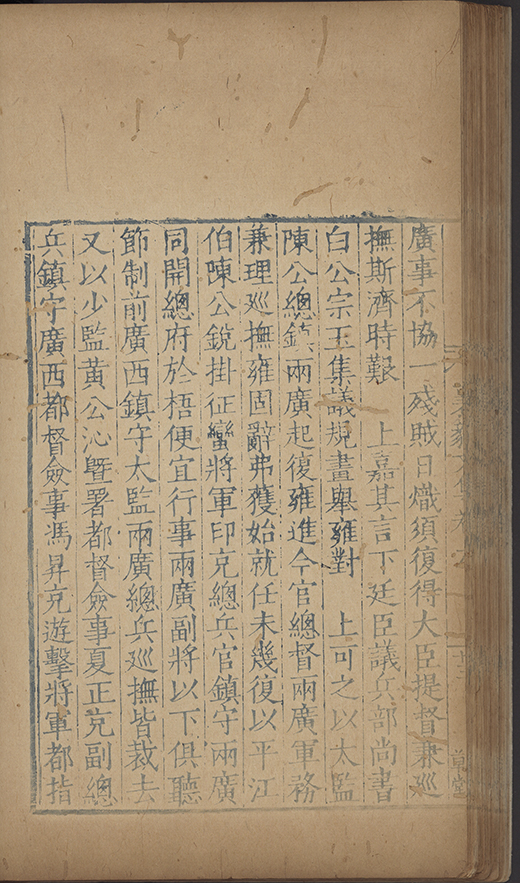 廣事不協一殘賊日熾須復得大臣提督兼巡
撫斯濟時艱　上嘉其言下廷臣議兵部尚書
白公宗玉集議規畫舉雍對　上可之以太監
陳公總鎮兩廣起復雍進今官總督兩廣軍務
兼理巡撫雍固辭弗獲始就任未幾復以平江
伯陳公銳掛征蠻將軍印充總兵官鎮守兩廣
同開總府於梧便宜行事兩廣副將以下俱聽
節制前廣西鎮守太監兩廣總兵巡撫皆裁去
又以少監黃公沁暨署都督僉事夏正充副總
兵鎮守廣西都督僉事馮昇充遊擊將軍都指
草堂